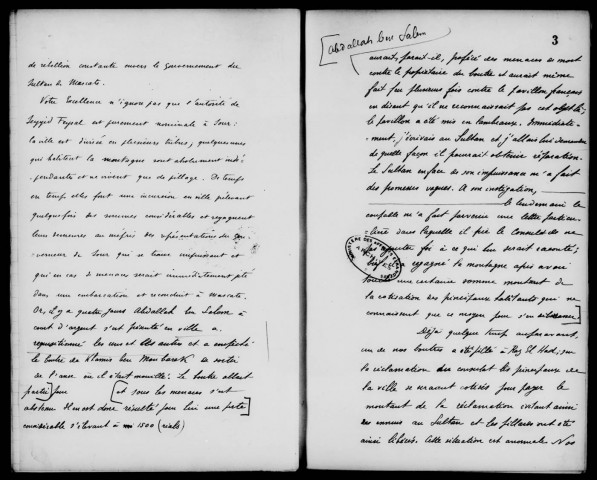 de rebellion constante envers le Gouvernement du
Sultan de Mascate.
Votre Excellence n'ignore pas que l'autorité de
Seyyid Fayçal est purement nominale à Sour:
la ville est divisée en plusieurs tribus; quelques unes
qui habitent la montagne sont absolument indé-
pendantes et ne vivent que de pillage. De temps
en temps elles font une incursion en ville prélevant
quelquefois des sommes considérables et regagnent
leurs demeures au mépris des représentations du Gou-
verneur de Sour qui se trouve impuissant et
qui en cas de menaces serait immédiatement jeté
dans une embarcation et reconduit à Mascate.
Or, il y a quatre jours Abdallah ben Salem à
court d'argent s'est présenté en ville a
réquisitionné les uns et les autres et a empêché
le boutre de Khamis ben Moubarek de sortir
de l'anse où il était mouillé. Le boutre allant
partir pour [et sous les menaces s'est
abstenu. Il en est donc résulté pour lui une perte]
considérable s'élevant à 1500 (reals)
[Abdallah ben Salem
3
aurait, paraît-il, proféré des menaces de mort
contre le propriétaire du boutre et aurait même
fait feu plusieurs fois contre le pavillon français
en disant qu'il ne reconnaissait pas cet objet là;
le pavillon a été mis en lambeaux. Immédiate-
ment, j'écrivais au Sultan et j'allais lui demander
de quelle façon il pourrait obtenir réparation.
Le Sultan en face de son impuissance m'a fait
des promesses vagues. A son instigation,
le lendemain la
m'a fait parvenir une lettre
dans laquelle il prie le Consulat de ne
pas ajouter foi à ce qui lui serait raconté;
regagné la montagne après avoir
une certaine somme montant de
la cotisation des principaux habitants qui ne
connaissent que ce moyen pour s'en débarrasser]
Déjà quelque temps auparavant,
un de nos boutres a été pillé à Raz El Had, sur
la réclamation du consulat les principaux de
la ville se seraient cotisés pour payer le
montant de la réclamation évitant ainsi
des ennuis au Sultan et les pillards ont été
ainsi libérés. Cette situation est anormale. Nos